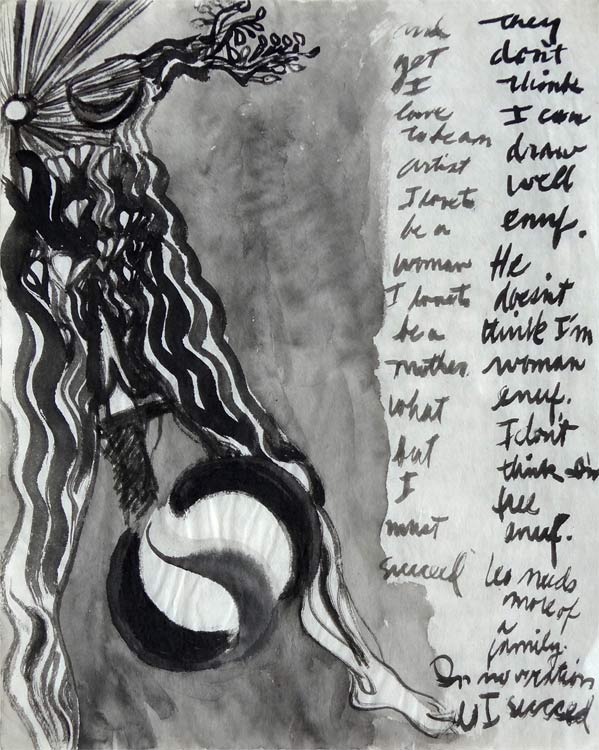 and
yet
I
love
to be an
artist
I love to
be a
woman
I love to
be a
mother
what
but
I
must
succeed
they
don't
think
I can
draw
well
enuf.
He
doesn't
think I'm
woman
enuf.
I don't
think I'm
free
enuf.
Leo needs
more of
a
family.
In no
I succeed